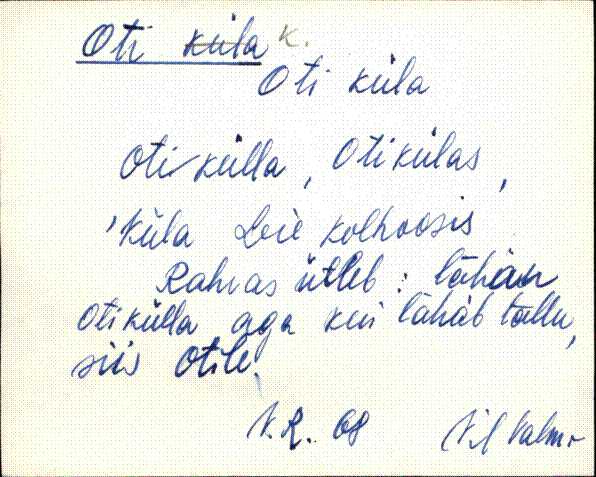 Oti küla k.
Oti küla
Oti külla, Otikülas,
'Küla Leie kolhoosis
Rahvas ütleb: lähän
Otikülla aga kui lähäb tallu,
siis Otile.
V.R. 68